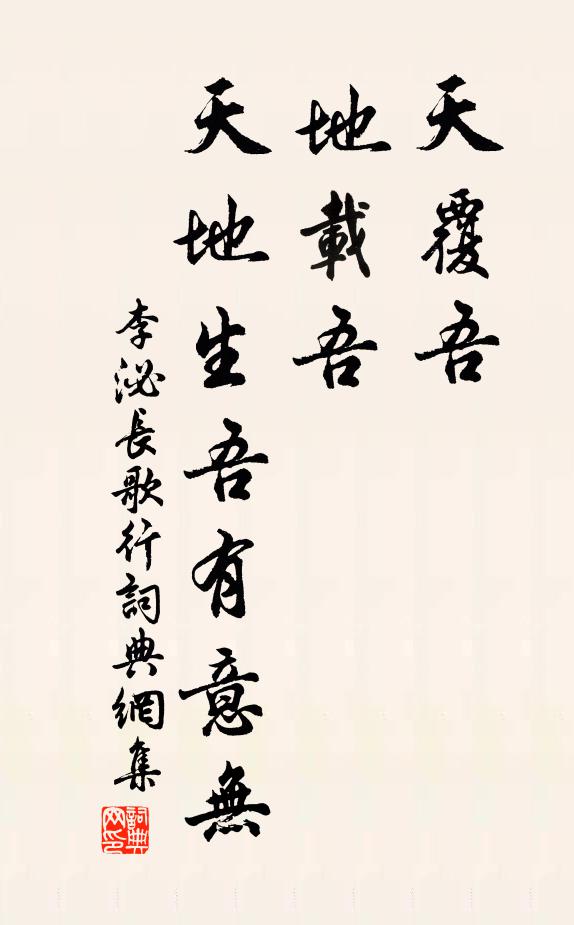 天覆吾
地載吾
天地生吾有意無
李泌長歌行詞典網集
詞典網印